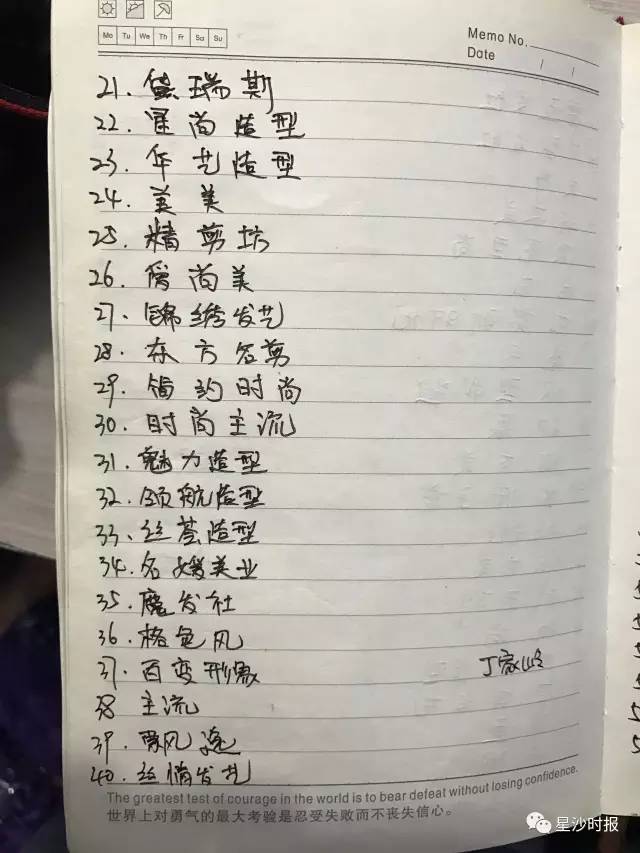 Mo Tu We Th Fr Sa Su
Memo No.
Date / /
21. 黛瑞斯
22. 星尚造型
23. 年艺造型
24. 美美
25. 精剪坊
26. 尚美
27. 锦绣发艺
28. 东方名剪
29. 简约时尚
30. 时尚主流
31. 魅力造型
32. 领航造型
33. 丝荟造型
34. 名媛美业
35. 魔发社
36. 格色风
37. 百变形象
38 主流
39. 飘风逸
40. 丝情发艺
The greatest test of courage in the world is to bear defeat without losing confidence.
世界上对勇气的最大考验是忍受失败而不丧失信心。
星沙时报